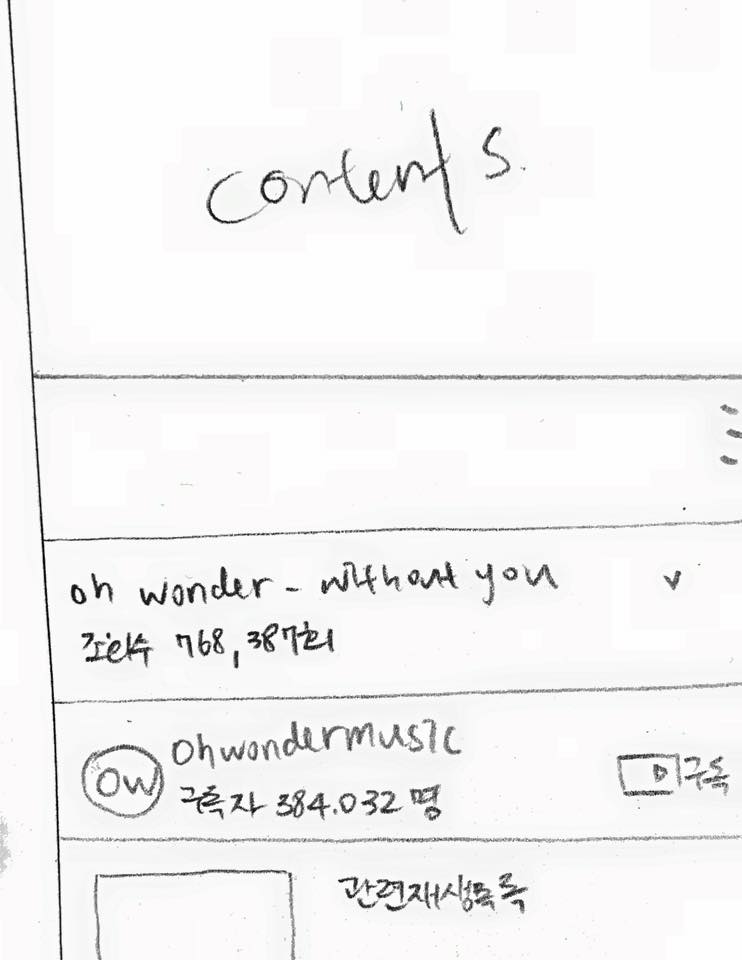 contents.
oh wonder - without you
조회수 768,387회
OW
ohwondermusic
구독자 384.032명
구독
관련재생목록